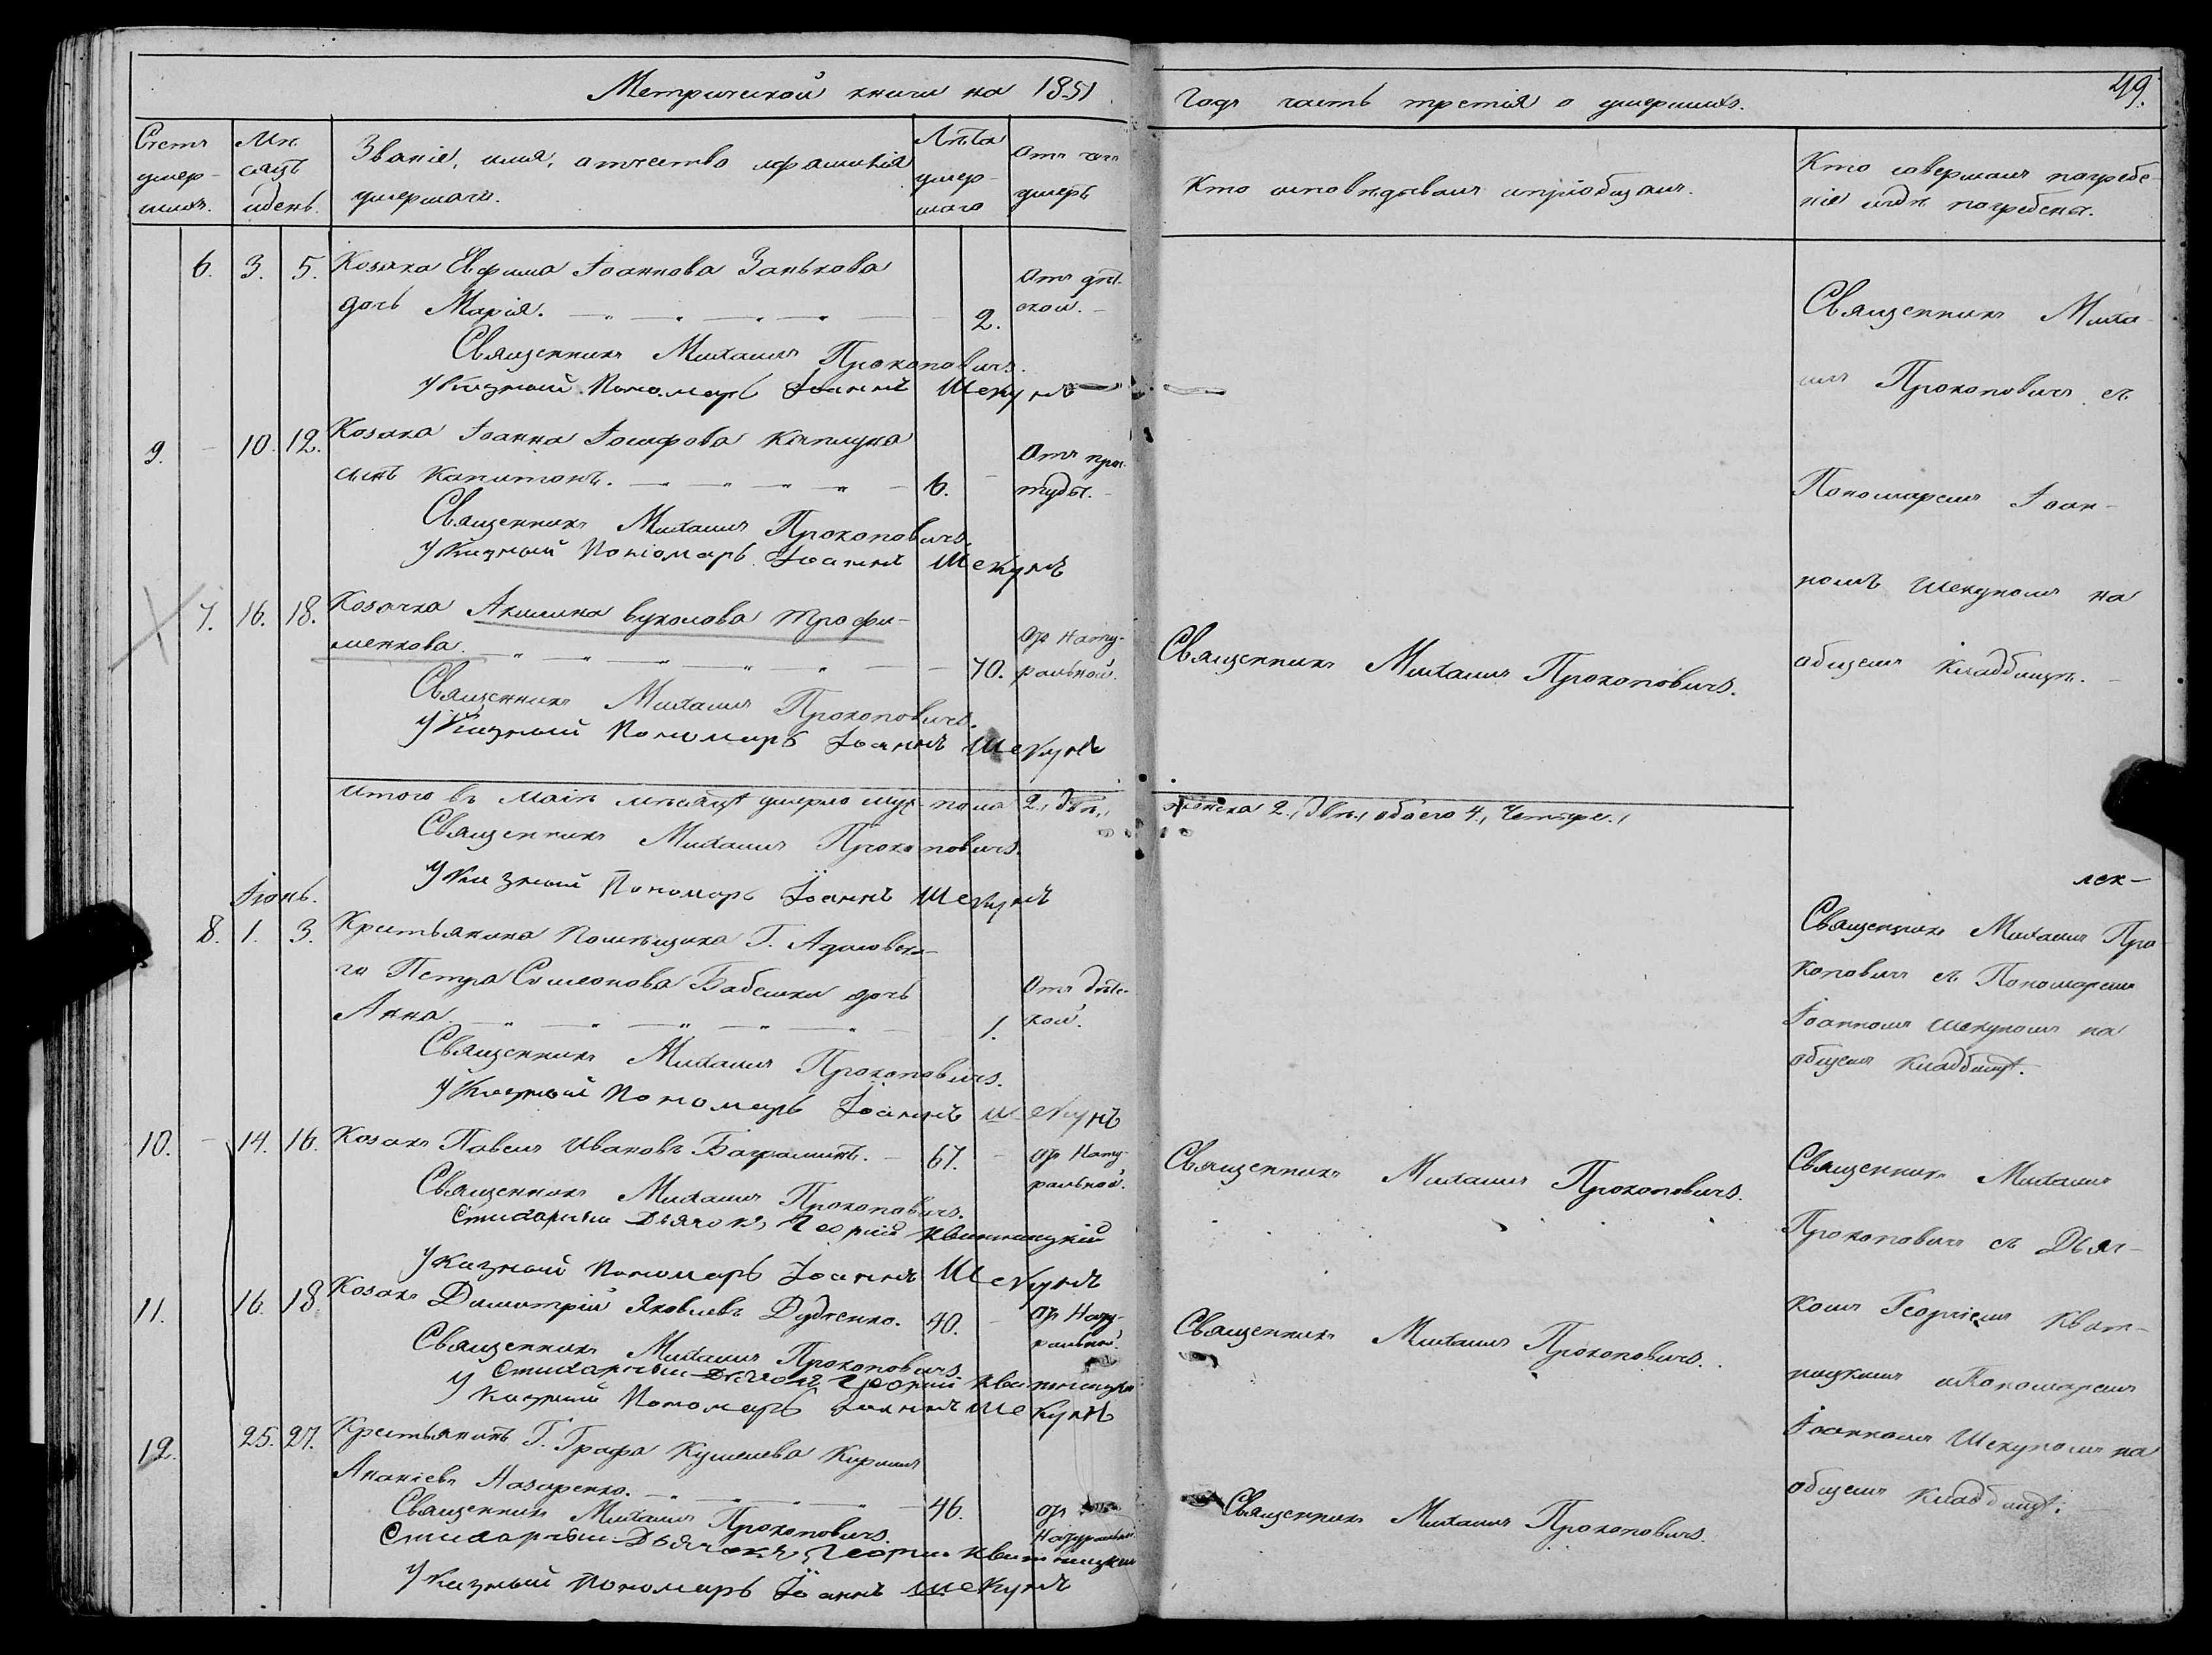 Метрической книги на 1851
Годъ часть третія о умершихъ.
49.
Счетъ умер-шихъ.
Мѣсяцъ и день.
Званіе, имя, отчество и фамилія
умершаго.
Лѣта
умер-
шаго
Отъ чего
умеръ
Кто исповѣдывалъ и пріобщалъ.
Кто совершалъ погребе-
ніе и гдѣ погребены.
6. 3. 5. Козака Евфима Іоаннова Занькова
дочь Марія. 2.
Отъ дѣт-
ской.
Священникъ Михаилъ Прокоповичъ.
Указный Пономарь Іоаннъ Шекунъ
Священникъ Миха-
илъ Прокоповичъ съ
9. - 10. 12. Козака Іоанна Іосифова
сынъ Капитонъ. 6. -
Отъ прос-
туды.
Священникъ Михаилъ Прокоповичъ.
Указный Пономарь Іоаннъ Шекунъ
Пономаремъ Іоан-
номъ Шекуномъ на
7. 16. 18. Козачка Акилина Вуколова Трофи-
менкова. 70.
Отъ Нату-
ральной.
Священникъ Михаилъ Прокоповичъ.
общемъ Кладбищѣ.
Священникъ Михаилъ Прокоповичъ.
Указный Пономарь Іоаннъ Шекунъ
Итого въ Маіѣ мѣсяцѣ умерло муж. пола 2., два,
женска 2., двѣ, обоего 4., Четыре.,
Священникъ Михаилъ Прокоповичъ.
Указный Пономарь Іоаннъ Шекунъ
Іюнь.
8. 1. 3. Крестьянина Помѣщика Г. Адамовска-
го Петра Симеонова Бабешки дочь
Анна. 1.
Отъ дѣтс-
кой.
Священникъ Михаилъ Прокоповичъ.
Указный Пономарь Іоаннъ Шекунъ
Священникъ Михаилъ Про-
коповичъ съ Пономаремъ
Іоанномъ Шекуномъ на
общемъ Кладбищѣ.
10. - 14. 16. Козакъ Павелъ Ивановъ 67. -
Отъ Нату-
ральной.
Священникъ Михаилъ Прокоповичъ.
Священникъ Михаилъ Прокоповичъ.
Стихарный Дьячокъ Георгій Квитницкій
Указный Пономарь Іоаннъ Шекунъ
Священникъ Михаилъ
Прокоповичъ съ Дьяч-
11. 16. 18. Козакъ Димитрій Яковлевъ Дудченко. 40. -
Отъ Нату-
ральной.
Священникъ Михаилъ Прокоповичъ.
Священникъ Михаилъ Прокоповичъ.
Стихарный Дьячокъ Георгій Квитницкій
Указный Пономарь Іоаннъ Шекунъ
комъ Георгіемъ Квит-
ницкимъ и Пономаремъ
12. 25. 27. Крестьянинъ Г. Графа Кушелева Кирилъ
Ананіевъ Назаренко. 46.
Отъ
Натуральной
Священникъ Михаилъ Прокоповичъ.
Священникъ Михаилъ Прокоповичъ.
Стихарный Дьячокъ Георгій Квитницкій
Указный Пономарь Іоаннъ Шекунъ
Іоанномъ Шекуномъ на
общемъ Кладбищѣ.